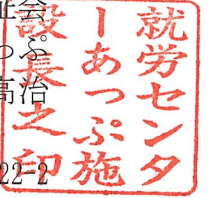 会
っぷ
高治
22-2
就労センタ
ーあっぷ施
設長之印